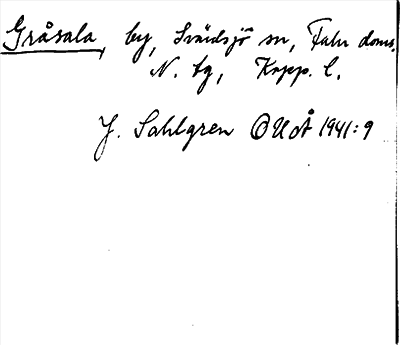 Gråsala, by, Svärdsjö sn, Falu doms.
N. tg, Kopp. l.
J. Sahlgren OUÅ 1941:9